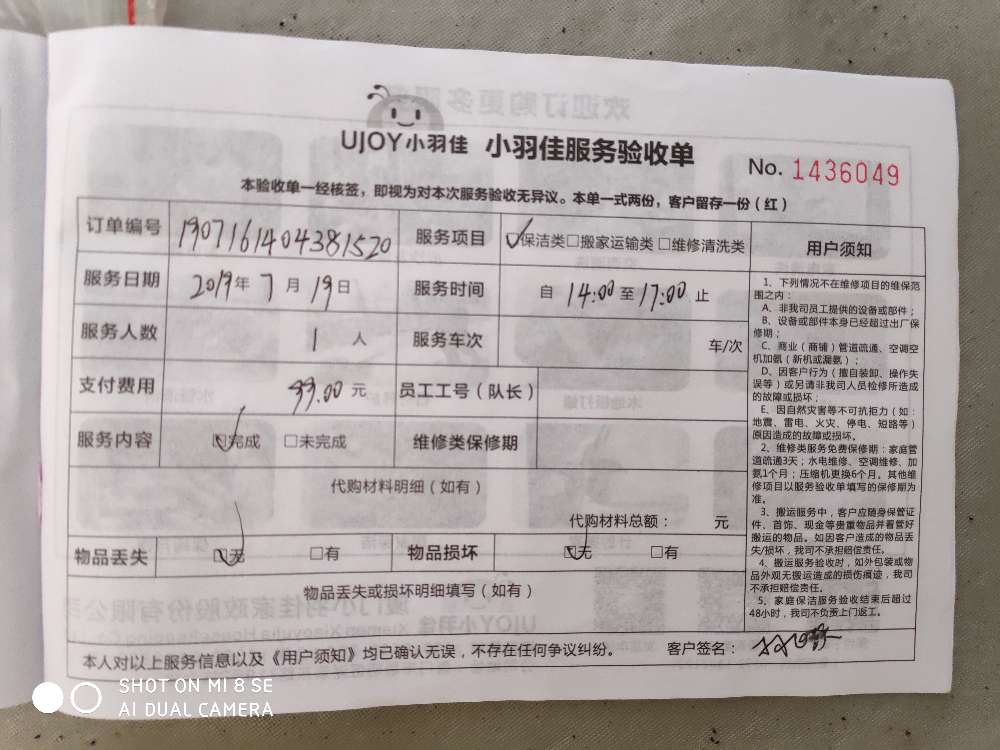 UJOY小羽佳 小羽佳服务验收单 No. 1436049
本验收单一经核签，即视为对本次服务验收无异议。本单一式两份，客户留存一份（红）
订单编号 1907161404381520 服务项目 ☑保洁类□搬家运输类□维修清洗类
服务日期 2019年7月19日 服务时间 自14:00至17:00止
服务人数 1人 服务车次 车/次
支付费用 99.00元 员工工号（队长）
服务内容 ☑完成 □未完成 维修类保修期
代购材料明细（如有）
代购材料总额： 元
物品丢失 ☑无 □有 物品损坏 ☑无 □有
物品丢失或损坏明细填写（如有）
本人对以上服务信息以及《用户须知》均已确认无误，不存在任何争议纠纷。 客户签名：
用户须知
1、下列情况不在维修项目的维保范
围之内：
A、非我司员工提供的设备或部件；
B、设备或部件本身已经超过出厂保
修期；
C、商业（商铺）管道疏通、空调空
机加氨（新机或漏氨）；
D、因客户行为（擅自装卸、操作失
误等）或另请非我司人员检修所造成
的故障或损坏；
E、因自然灾害等不可抗拒力（如：
地震、雷电、火灾、停电、短路等）
原因造成的故障或损坏。
2、维修类服务免费保修期：家庭管
道疏通3天；水电维修、空调维修、加
氨1个月；压缩机更换6个月。其他维
修项目以服务验收单填写的保修期为
准。
3、搬运服务中，客户应随身保管证
件、首饰、现金等贵重物品并看管好
搬运的物品。如因客户造成的物品丢
失/损坏，我司不承担赔偿责任。
4、搬运服务验收时，如外包装或物
品外观无搬运造成的损伤痕迹，我司
不承担赔偿责任。
5、家庭保洁服务验收结束后超过
48小时，我司不负责上门返工。
SHOT ON MI 8 SE
AI DUAL CAMERA